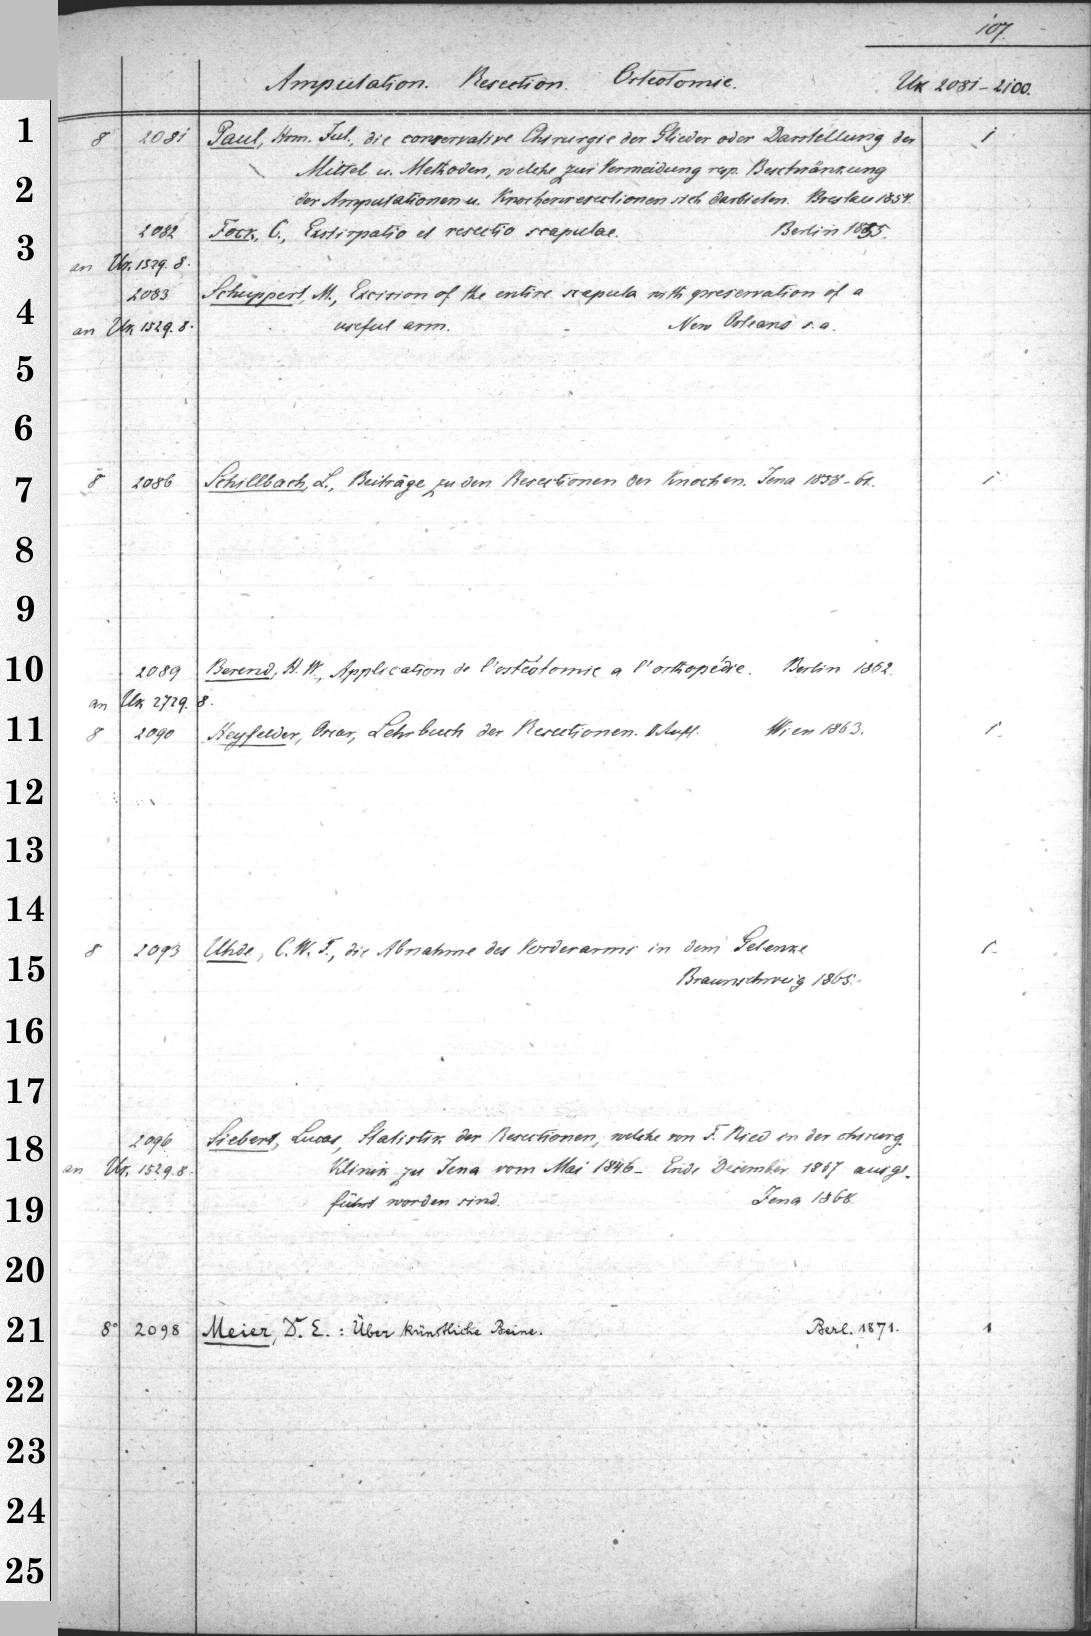 107.
Amputation. Resection. Osteotomie. Uk 2081-2100.
1 8 2081 Paul, Hrm. Jul., die conservative Chirurgie der Glieder oder Darstellung der 1
2 Mittel u. Methoden, welche zur Vermeidung resp. Beschränkung
der Amputationen u. Knochenresectionen sich darbieten. Breslau 1854.
3 2082 Fock, C., Exstirpatio et resectio scapulae. Berlin 1855.
an Uk. 1529. 8.
4 2083 Schuppert, M., Excision of the entire scapula with preservation of a
an Uk 1529. 8. useful arm. New Orleans s. a.
5
6
7 8 2086 Schillbach, L., Beiträge zu den Resectionen der Knochen. Jena 1858-61. 1
8
9
10 2089 Berend, H. W., Application de l'ostéotomie a l'orthopédie. Berlin 1862.
an Uk 2729. 8.
11 8 2090 Heyfelder, Oscar, Lehrbuch der Resectionen. II Aufl. Wien 1863. 1
12
13
14
15 8 2093 Uhde, C. W. F., die Abnahme des Vorderarms in dem Gelenke 1
Braunschweig 1865.
16
17
18 2096 Siebert, Lucas, Statistik der Resectionen, welche von F. Ried in der chirurg.
an Uk. 1529. 8. Klinik zu Jena vom Mai 1846- Ende December 1867 ausge-
19 führt worden sind. Jena 1868
20
21 8° 2098 Meier, Dr. E. : Über künstliche Beine. Berl. 1871. 1
22
23
24
25